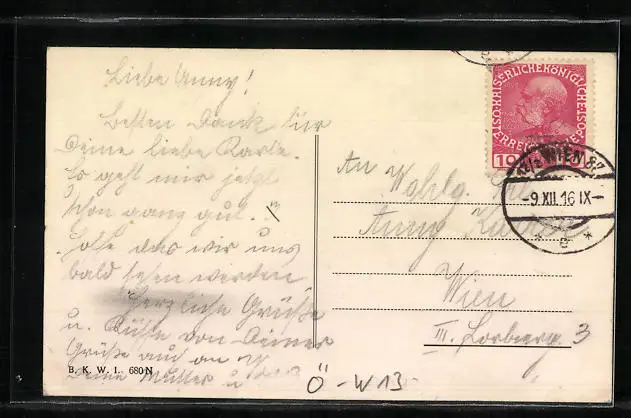 Liebe Anny!
Besten Dank für
Deine liebe Karte.
Es geht mir jetzt
schon ganz gut.
Hoffe das wir uns
bald sehen werden
Herzliche Grüße
u. Küsse von Deiner
Grüße auch an
Deine Mutter u
B. K. W. I. 680 N
KAISERLICHE KÖNIGLICHE
ÖSTERREICHISCHE POST
10 10
WIEN
-9.XII.16 IX-
* e *
An
Wohlg.
Anny
Wien
III.
3
Ö-W13-